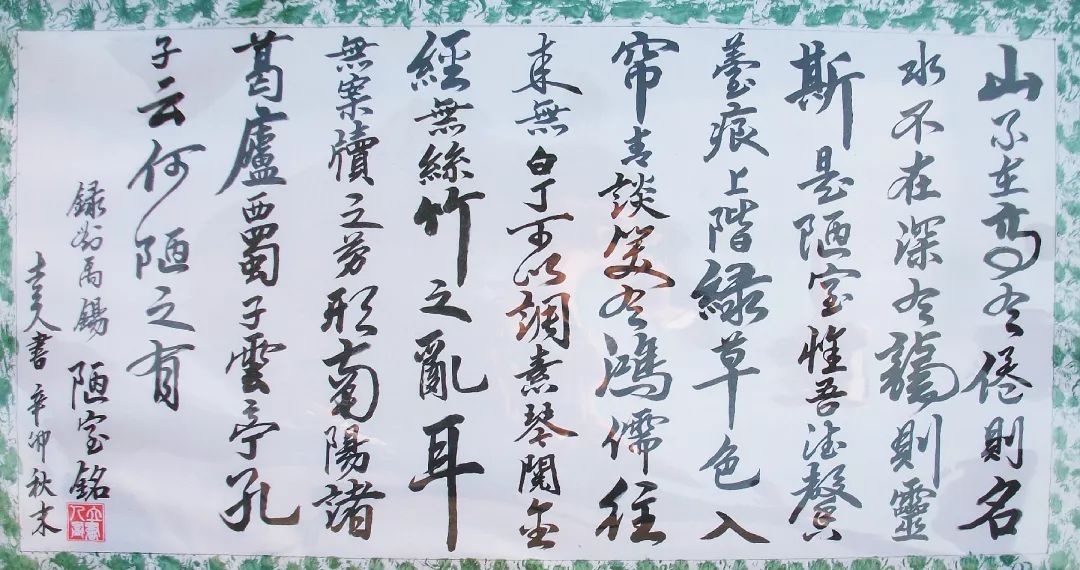 山不在高有僊則名
水不在深有龍則靈
斯是陋室惟吾德馨
薹痕上階綠草色入
帘青談笑有鴻儒往
來無白丁可以調素琴閱金
經無絲竹之亂耳
無案牘之勞形南陽諸
葛廬西蜀子雲亭孔
子云何陋之有
録劉禹錫陋室銘
書辛卯秋末